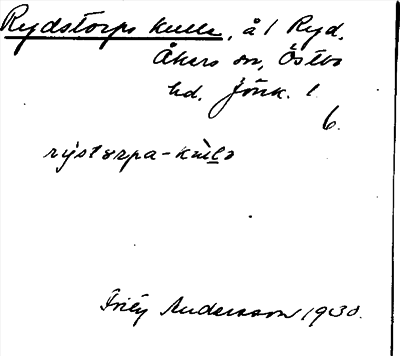 Rydstorps kulle, å 1 Ryd,
Åkers sn, Östbo
hd. Jönk. l
6.
rystorpa-kulo
Andersson 1930.